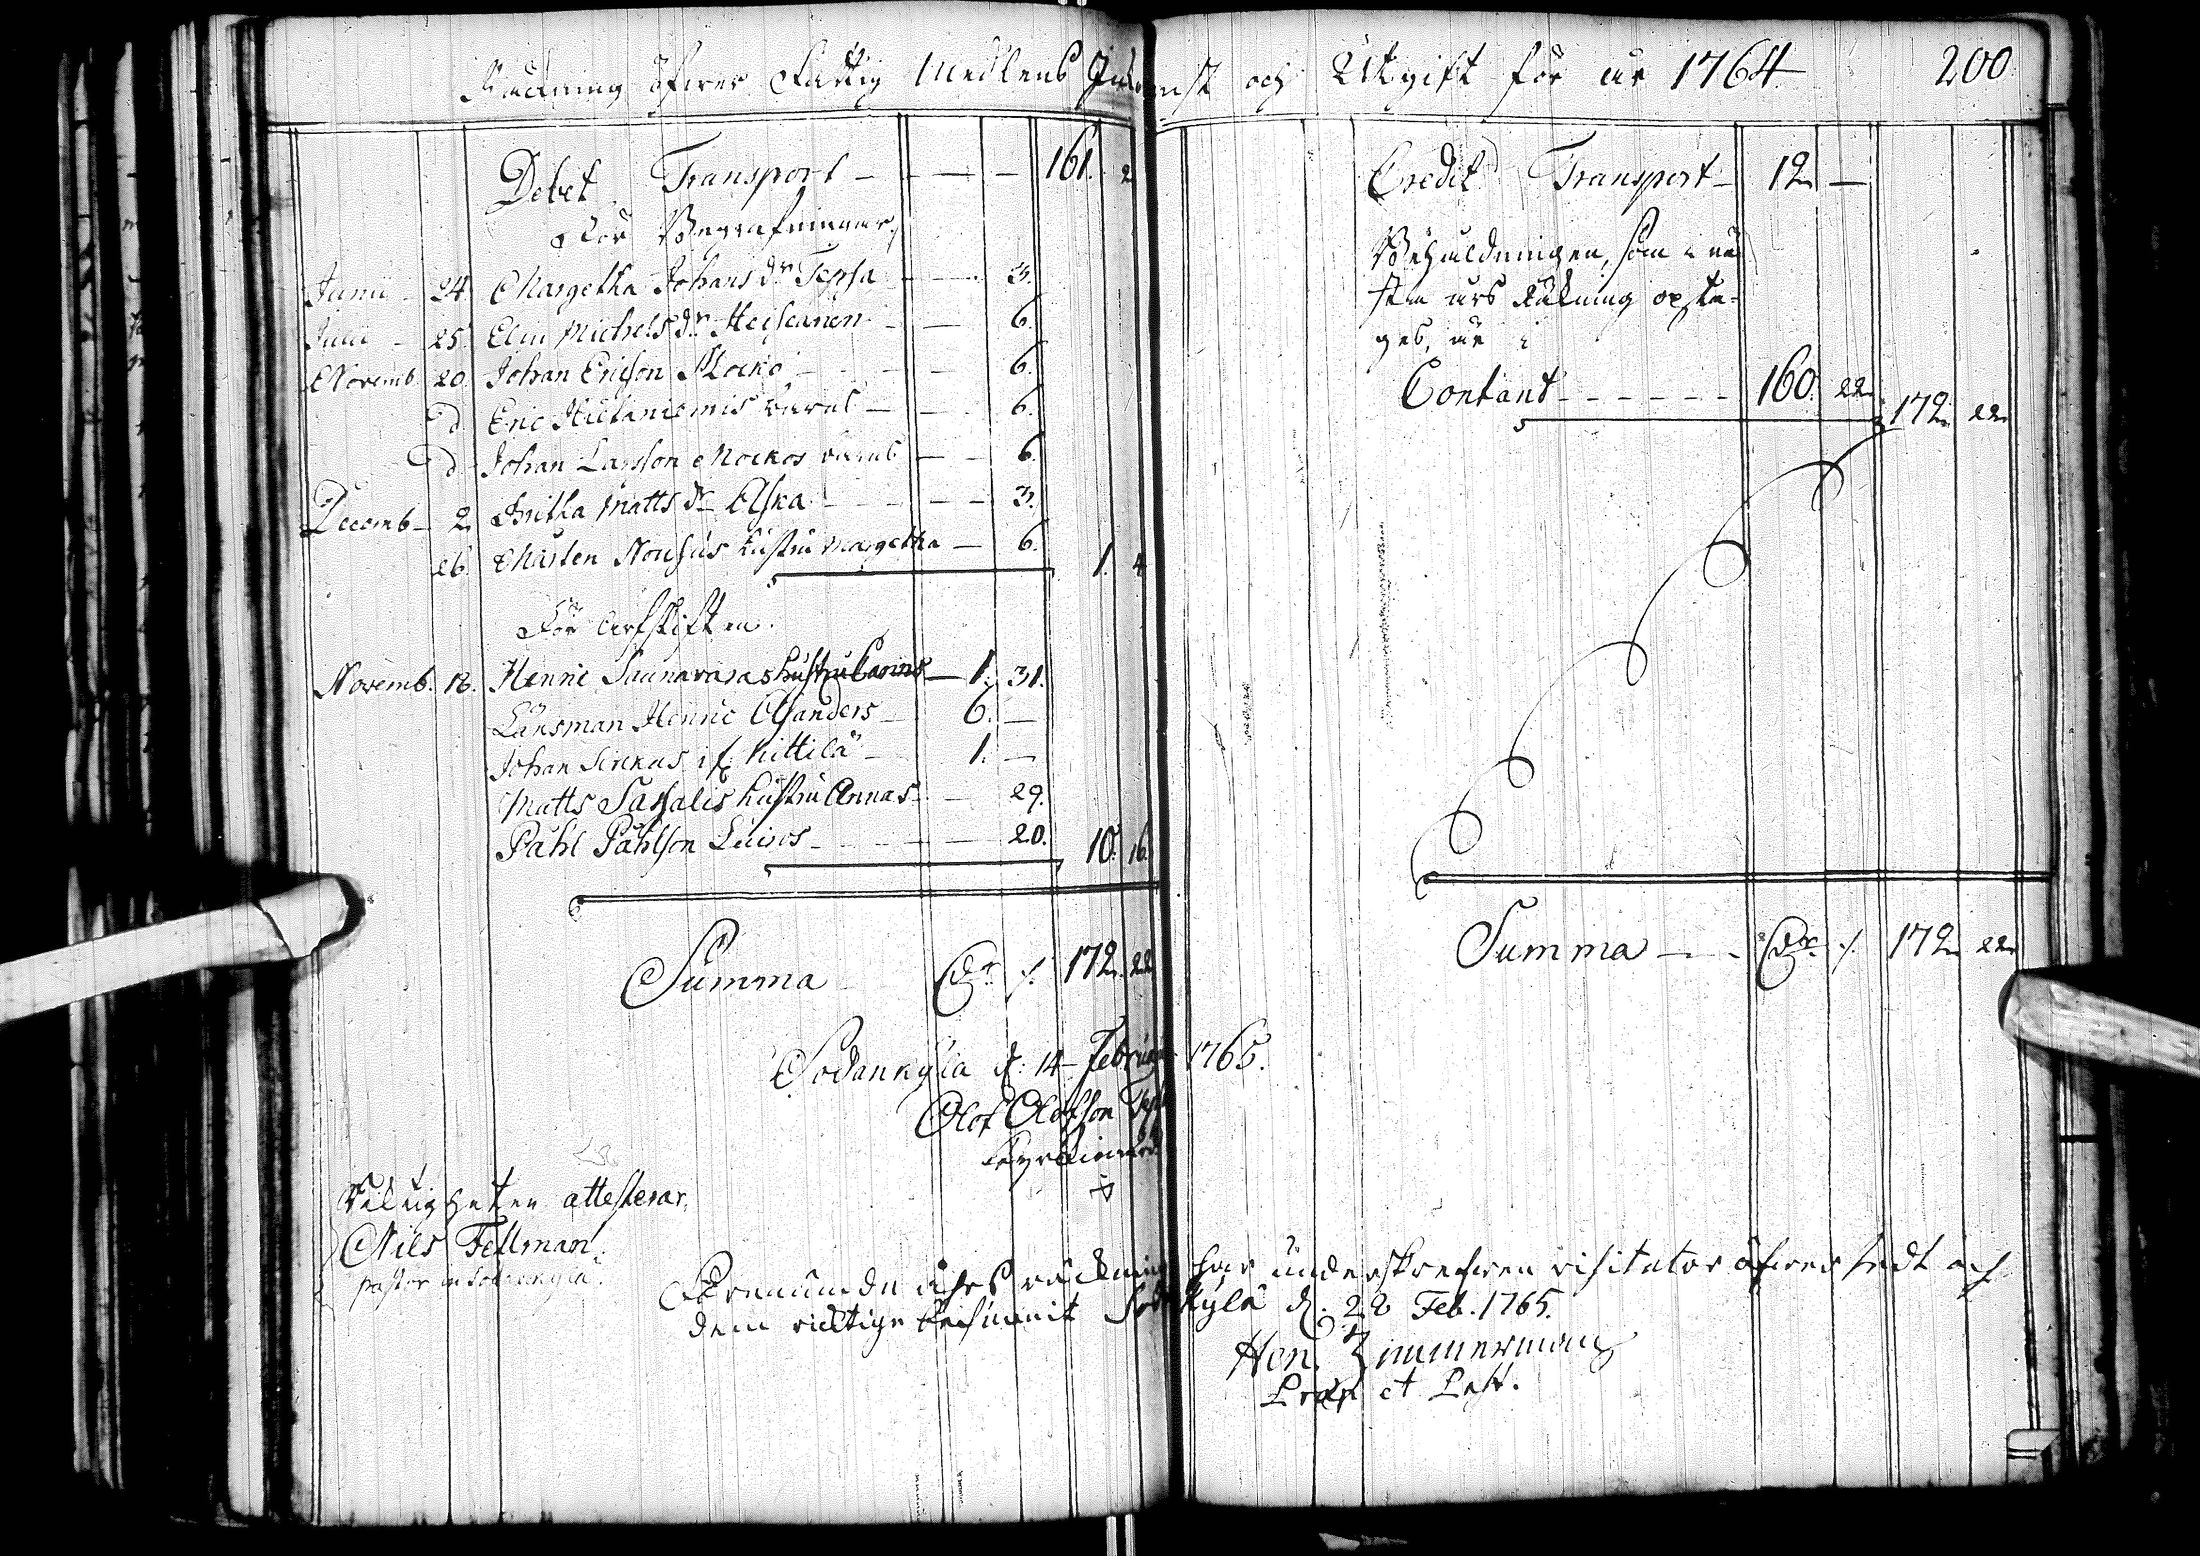 Räckning öfwer Fattig Medlens Inkomst och Utgift för år 1764
200
Debet Transport - - - - 161. 2
För Begrafningar,
Junii - 24. Margetha Johans dr Tepsa - - - 3.
Julii - 25. Elin Michels dr Heiscanen - - 6.
Novemb. 20. Johan Ericson Mocko - - - - 6.
D. Eric Hietaniemis barns - - 6.
D. Johan Larsson Mockos barns - - 6.
Decemb. 2. Britha Matts dr Aska - - - - 3.
26. Mårten Nousus hustru Margetha - 6. 1. 4
För arfskiften.
Novemb. 18. Henric Saunavaras hustru Carins - 1. 31.
Länsman Henric Alanders - 6. -
Johan Sirckas if. Kittilä - 1. -
Matts Sassalis hustru Annas - 29.
Påhl Påhlson Luiros - - - - 20. 10. 16.
Summa Dr ./. 172. 22
Sodankyla d. 14 Februar 1765.
Olof Olofson
Kyrckiowärd
Riktigheten attesterar,
Nils Fellman
pastor in Sodankylä.
Credit Transport - 12 -
Behållningen, som i nä-
sta års Räkning opta-
ges, är i
Contant - - - - - - 160. 22 172. 22
Summa - - Dr ./. 172 22
Förenämde åhrs räckning har underskrefwen visitator öfwersedt och
dem richtige befunnit Sodankylä d. 28 Feb. 1765.
Hen. Zimmerman
Præp. et Past.